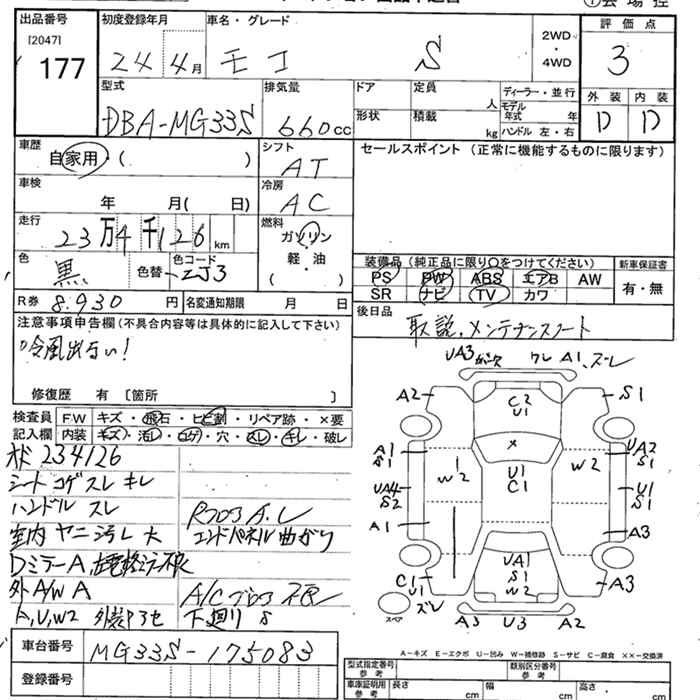 出品番号
[2047]
177
初度登録年月
24 4月
車名・グレード
モコ S
2WD
・
4WD
評価点
3
型式
DBA-MG33S
排気量
660cc
ドア
定員
人
形状
積載
kg
ディーラー・並行
モデル
年式 年
ハンドル 左・右
外装 内装
D D
車歴
自家用・( )
シフト
AT
セールスポイント (正常に機能するものに限ります)
車検
年 月( 日)
冷房
AC
走行
23万4千126km
燃料
ガソリン
軽・油
( )
色
黒
色替
色コード
ZJ3
装備品 (純正品に限り○をつけてください)
新車保証書
PS PW ABS エアB AW
SR ナビ TV カワ
有・無
R券 8.930 円
名変通知期限 月 日
後日品
取説、メンテナンスノート
注意事項申告欄 (不具合内容等は具体的に記入して下さい)
冷風出ない!
修復歴 有 [箇所 ]
検査員
記入欄
F.W キズ・飛石・ヒビ割・リペア跡・×要
内装 キズ・汚レ・コゲ・穴・スレ・キレ・破レ
234126
シート コゲ スレ キレ
ハンドル スレ
室内 ヤニ 汚レ 大
エンドパネル 曲がり
DミラーA
外A/W A
A/C
A,U,W2
下廻り S
UA3 A1、ズレ
A2
S1
C2
U1
A1
S1
×
UA2
S1
W2
U1
C1
W2
UA4
S2
U1
S1
A1
A3
C1
U1
ズレ
スペア
UA1
S1
W2
A3
A3 U3 A2
A-キズ E-エクボ U-凹み W-補修跡 S-サビ C-腐食 ××-交換済
車台番号
MG33S-175083
登録番号
型式指定番号
参考
類別区分番号
参考
車庫証明用
参考
長さ cm
幅 cm
高さ cm